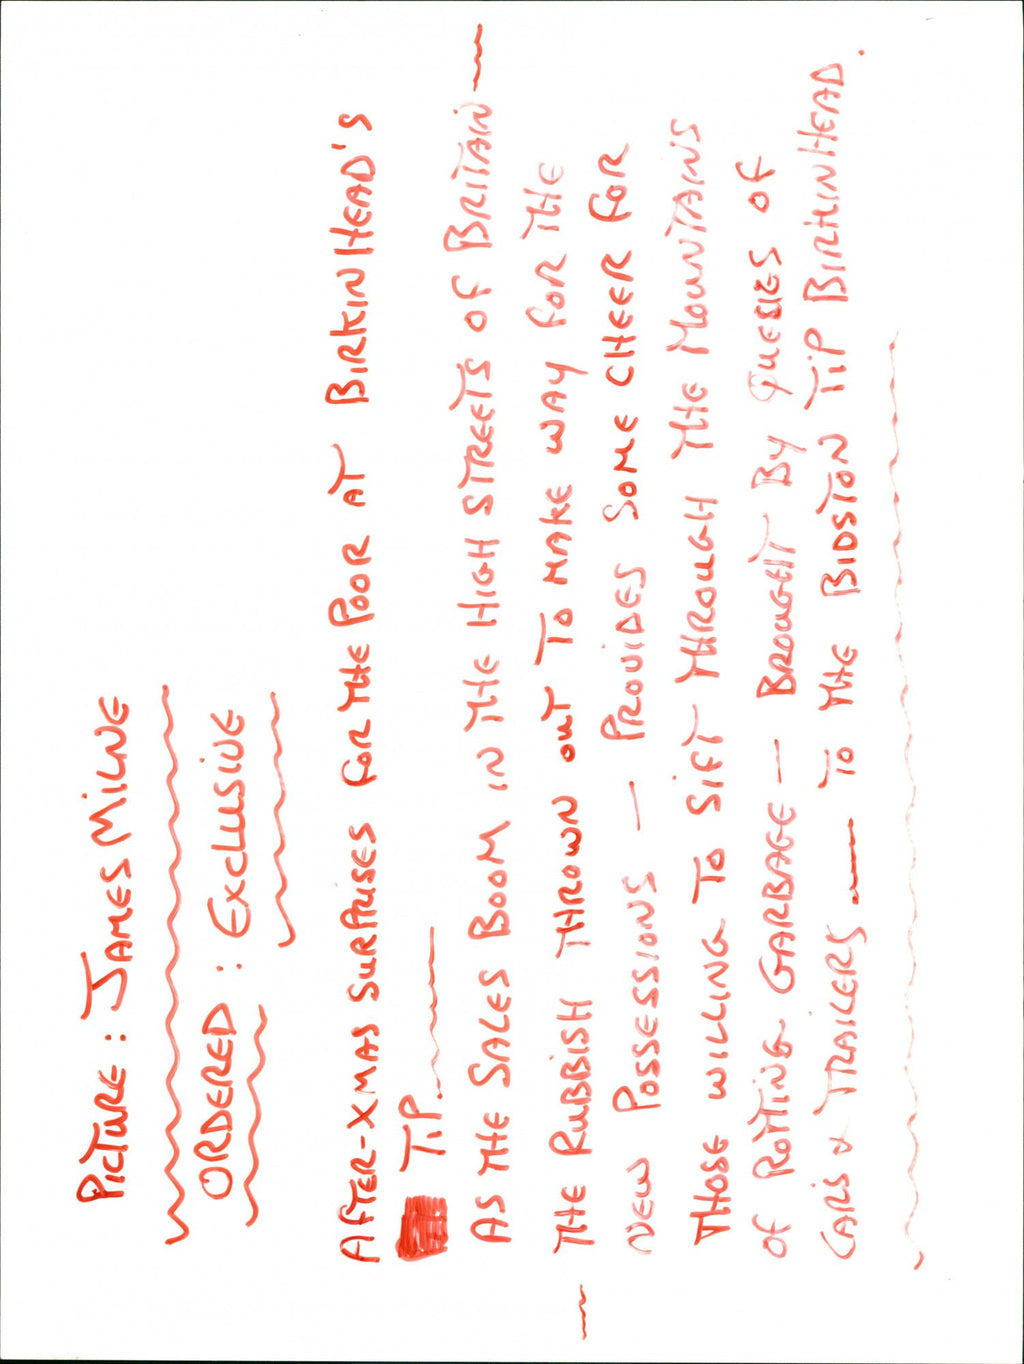 PICTURE: JAMES MILNE
ORDERED: EXCLUSIVE
AFTER-XMAS SURPRISES FOR THE POOR AT BIRKINHEAD'S
TIP
AS THE SALES BOOM IN THE HIGH STREETS OF BRITAIN —
— THE RUBBISH THROWN OUT TO MAKE WAY FOR THE
NEW POSSESSIONS — PROVIDES SOME CHEER FOR
THOSE WILLING TO SIFT THROUGH THE MOUNTAINS
OF ROTTING GARBAGE — BROUGHT BY QUEUES OF
CARS & TRAILERS — TO THE BIDSTON TIP BIRKINHEAD.